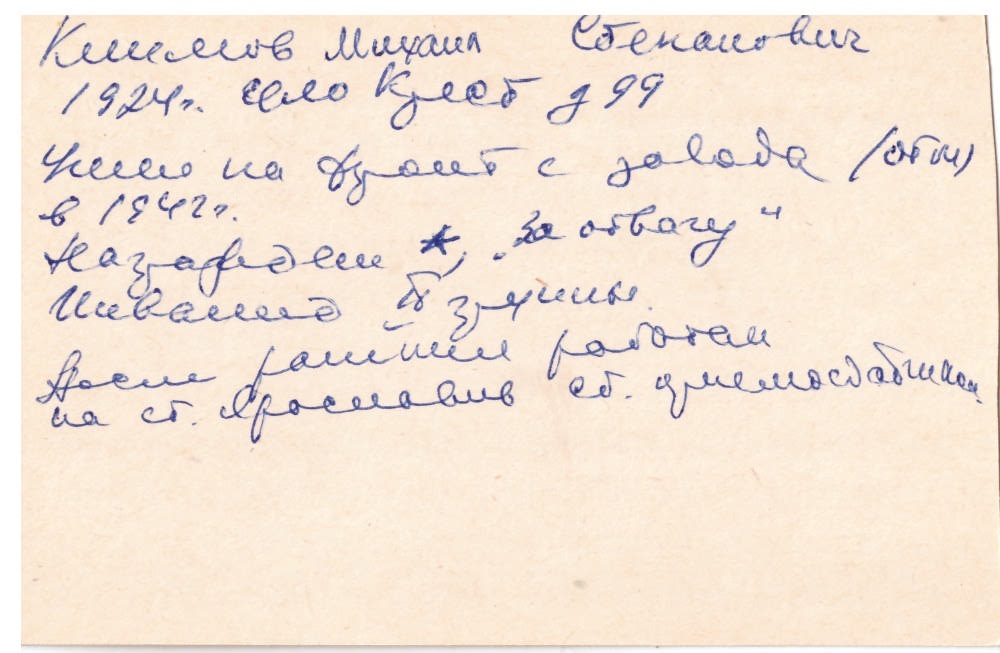 Климов Михаил Степанович
1924г. село Крест д 99
Ушел на фронт с завода
в 1942г.
Награжден ★, „За отвагу"
Инвалид II группы.
После ранения работал
на ст. Ярославль ст. приемосдатчиком.